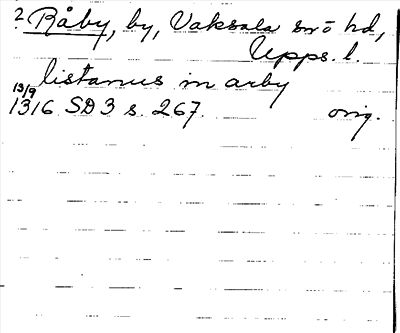 ? Råby, by, Vaksala snö hd,
Upps. l.
listanus in arby
13/9
1316 SD 3 s. 267. orig.